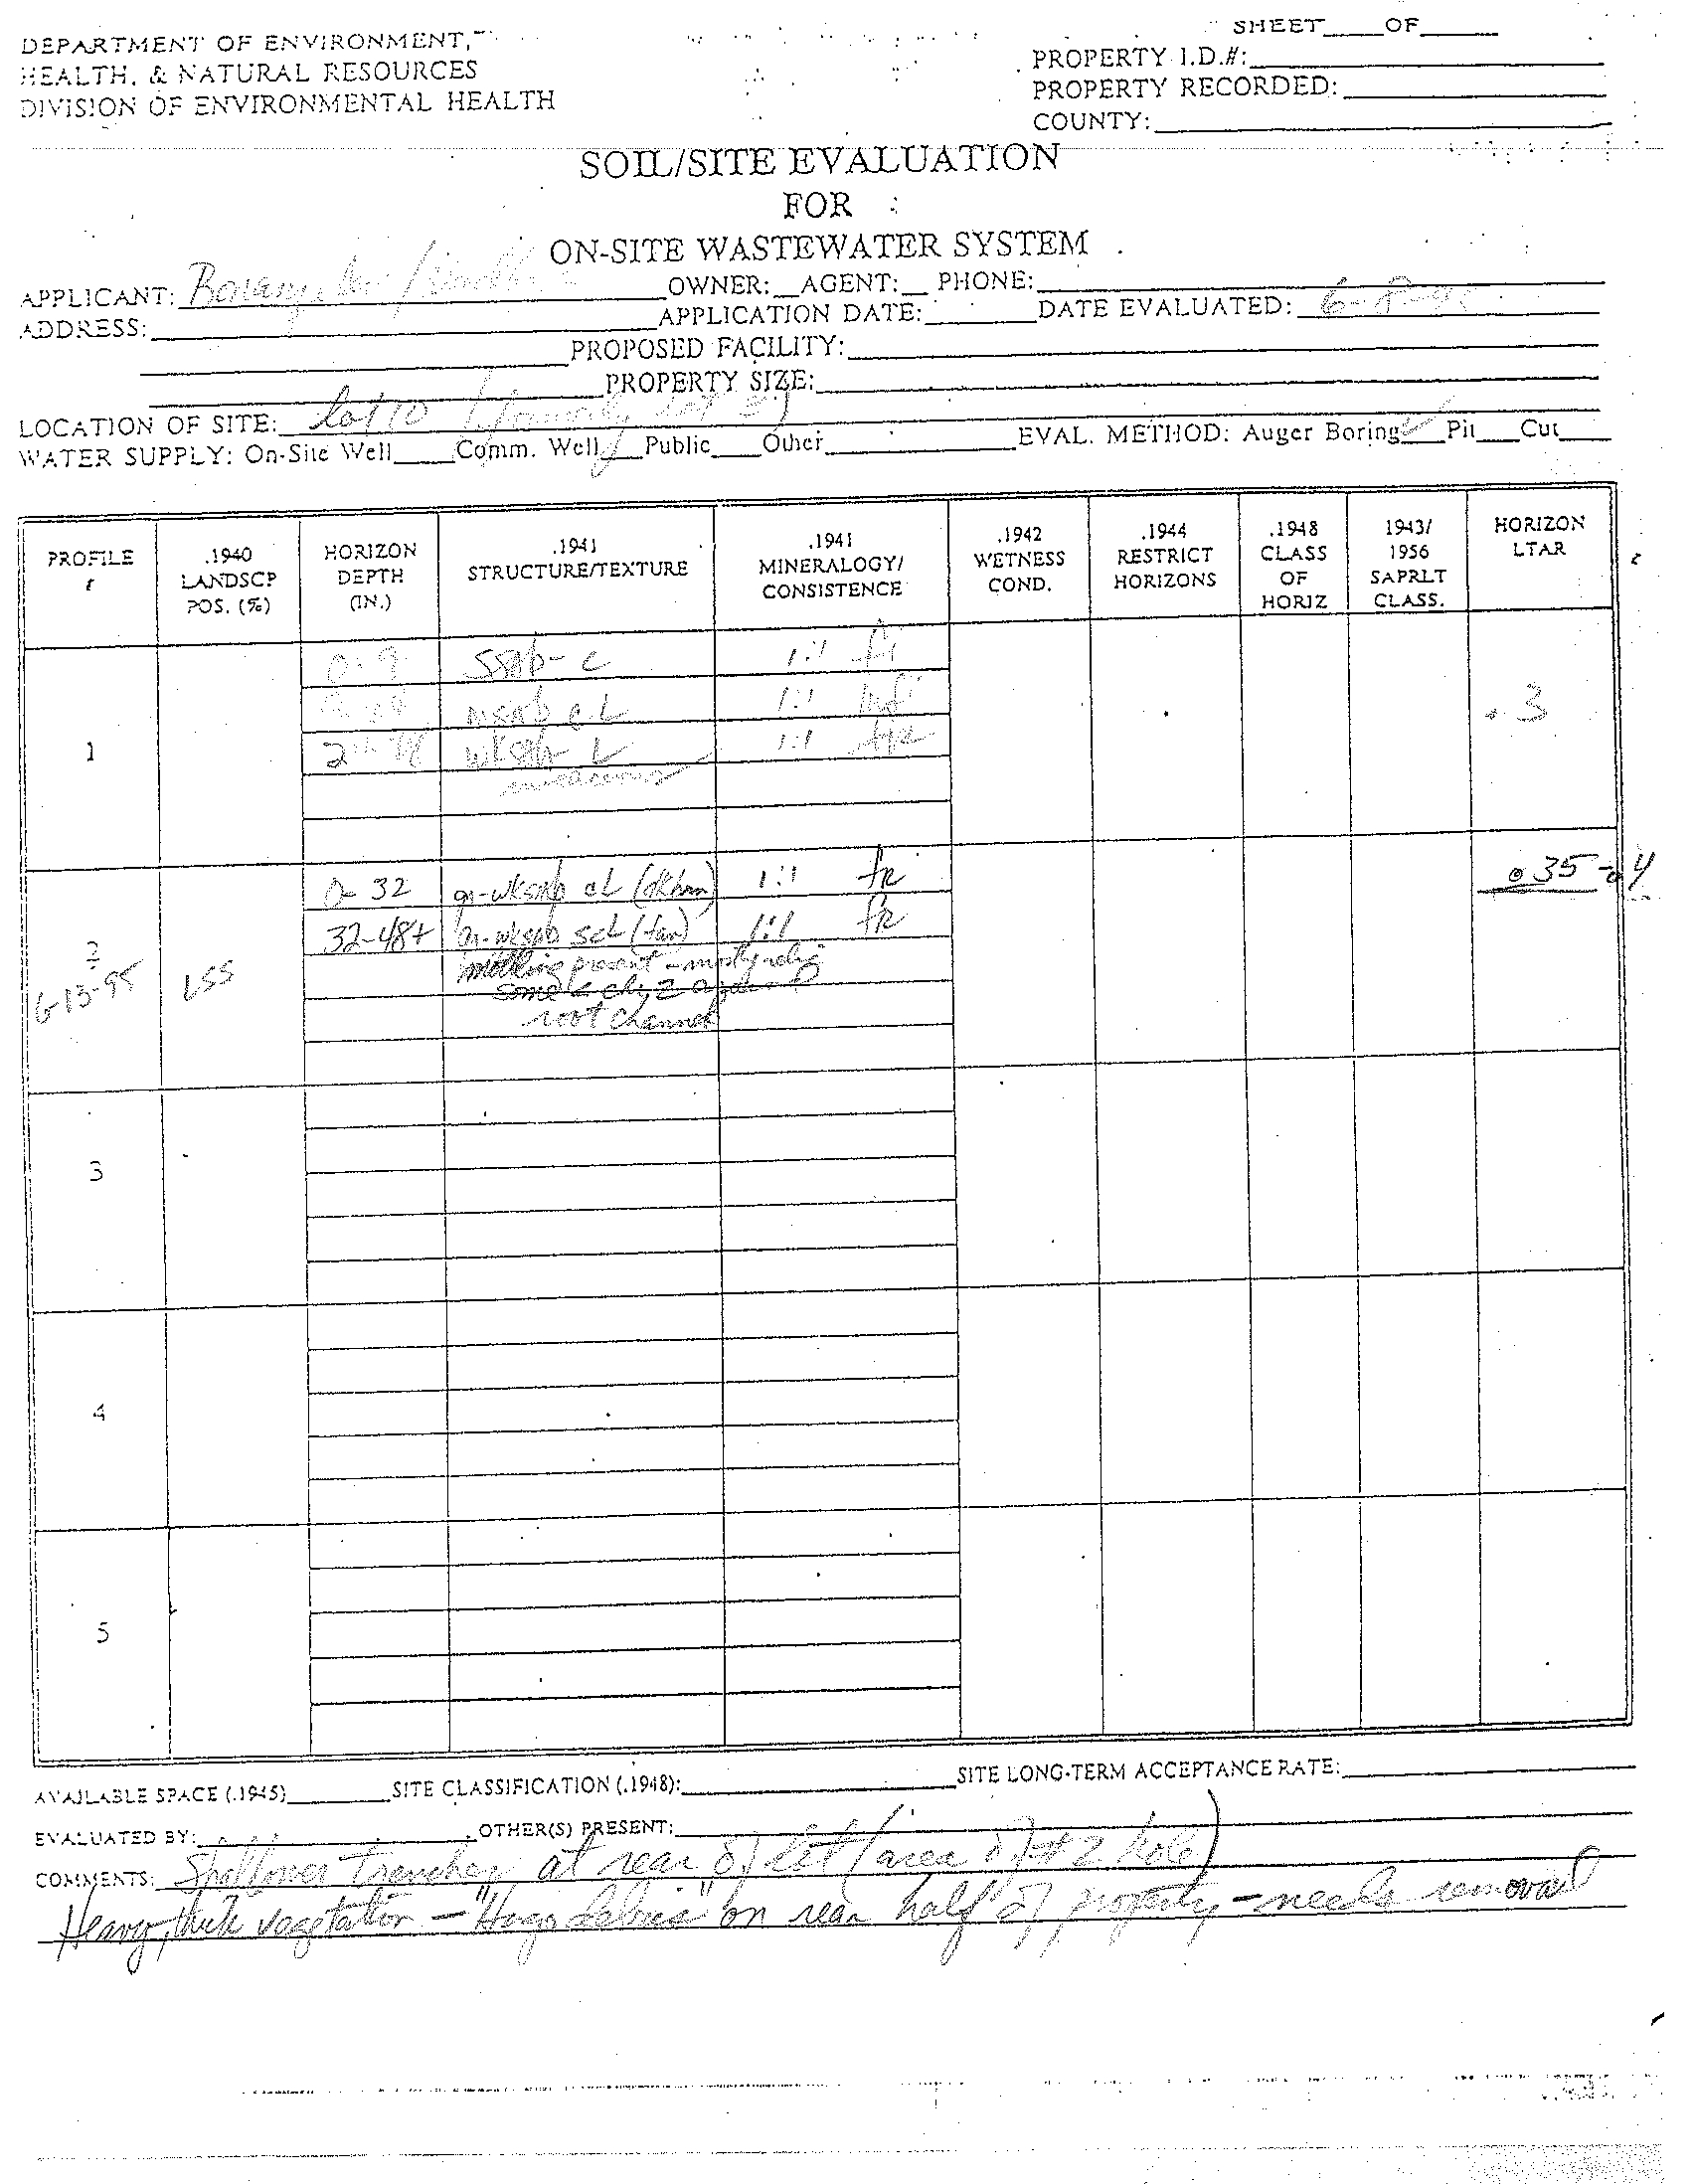 SHEET____OF____
DEPARTMENT OF ENVIRONMENT,
HEALTH, & NATURAL RESOURCES
DIVISION OF ENVIRONMENTAL HEALTH
PROPERTY I.D.#:
PROPERTY RECORDED:
COUNTY:
SOIL/SITE EVALUATION
FOR
ON-SITE WASTEWATER SYSTEM
APPLICANT: OWNER:__AGENT:__ PHONE:
ADDRESS: APPLICATION DATE: DATE EVALUATED: 6-8-95
PROPOSED FACILITY:
PROPERTY SIZE:
LOCATION OF SITE: Lot 10 (formerly Lot 29)
WATER SUPPLY: On-Site Well____Comm. Well ✓ Public____Other EVAL. METHOD: Auger Boring ✓ Pit___Cut___
PROFILE # .1940 LANDSCP POS. (%) HORIZON DEPTH (IN.) .1941 STRUCTURE/TEXTURE .1941 MINERALOGY/ CONSISTENCE .1942 WETNESS COND. .1944 RESTRICT HORIZONS .1948 CLASS OF HORIZ .1943/ 1956 SAPRLT CLASS. HORIZON LTAR
0-9 SSAB-C 1:1 fi
msab CL 1:1
.3
1 wksab L 1:1 fr
micaceous
0-32 gr-wksab cL (dkbrn) 1:1 fr .35-.4
32-48+ gr-wksab scL (tan) 1:1 fr
2 mottling present - mostly relic
6-13-95 LSS some
root channels
3
4
5
AVAILABLE SPACE (.1945) SITE CLASSIFICATION (.1948): SITE LONG-TERM ACCEPTANCE RATE:
EVALUATED BY: OTHER(S) PRESENT:
COMMENTS: Shallower trenches at rear of lot (area of #2 hole)
Heavy, thick vegetation - "Hugo debris" on rear half of property - needs removal